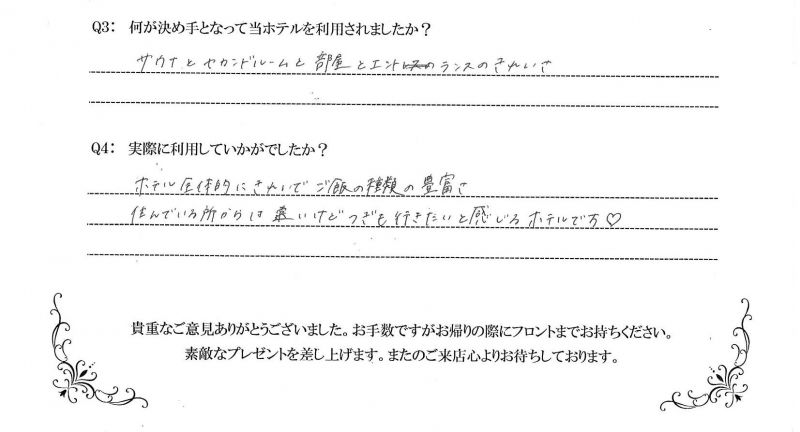 Q3: 何が決め手となって当ホテルを利用されましたか?
サウナとセカンドルームと部屋とエントランスのきれいさ
Q4: 実際に利用していかがでしたか?
ホテル全体的にきれいでご飯の種類の豊富さ
住んでいる所からは遠いけどつぎも行きたいと感じるホテルです♡
貴重なご意見ありがとうございました。お手数ですがお帰りの際にフロントまでお持ちください。
素敵なプレゼントを差し上げます。またのご来店心よりお待ちしております。